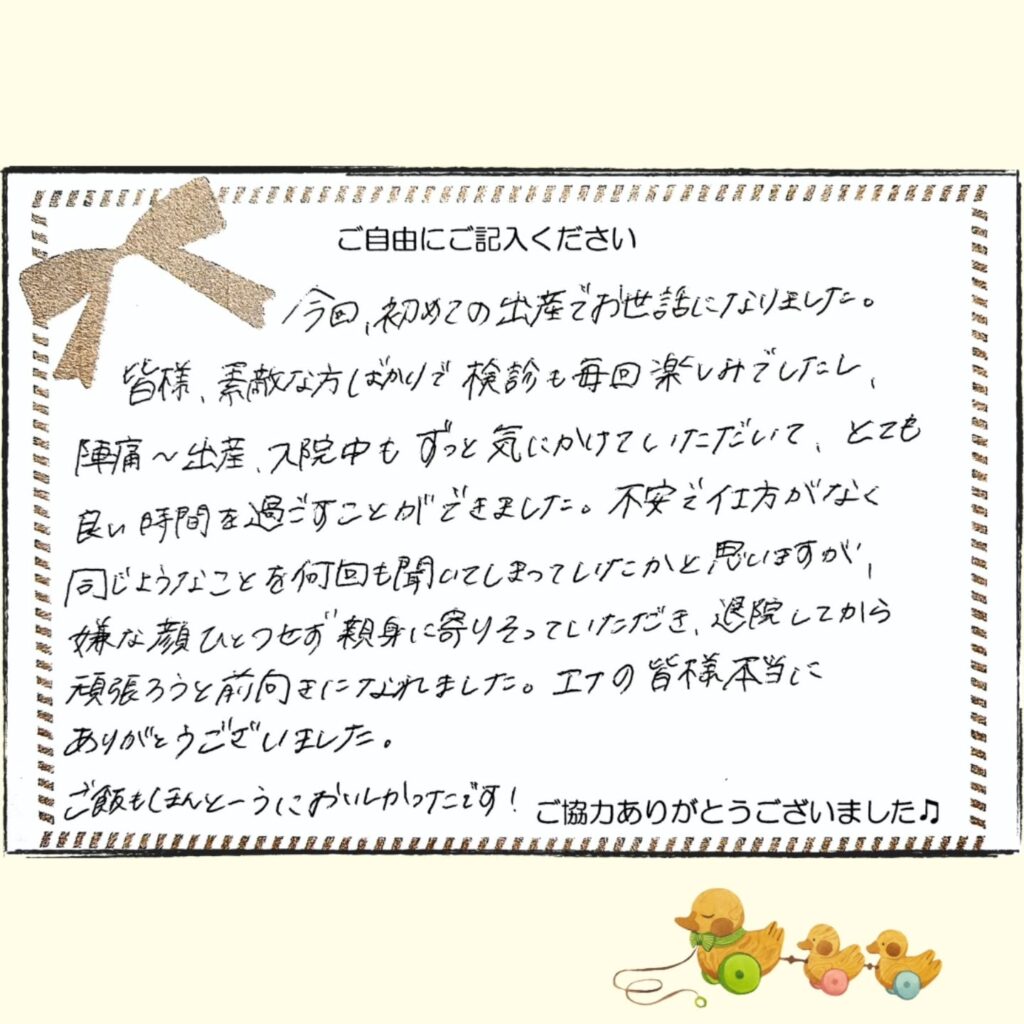 ご自由にご記入ください
今回、初めての出産でお世話になりました。
皆様、素敵な方ばかりで検診も毎回楽しみでしたし、
陣痛〜出産、入院中もずっと気にかけていただいて、とても
良い時間を過ごすことができました。不安で仕方がなく
同じようなことを何回も聞いてしまっていたかと思いますが、
嫌な顔ひとつせず親身に寄りそっていただき、退院してから
頑張ろうと前向きになれました。エナの皆様本当に
ありがとうございました。
ご飯もほんとーうにおいしかったです！
ご協力ありがとうございました♫